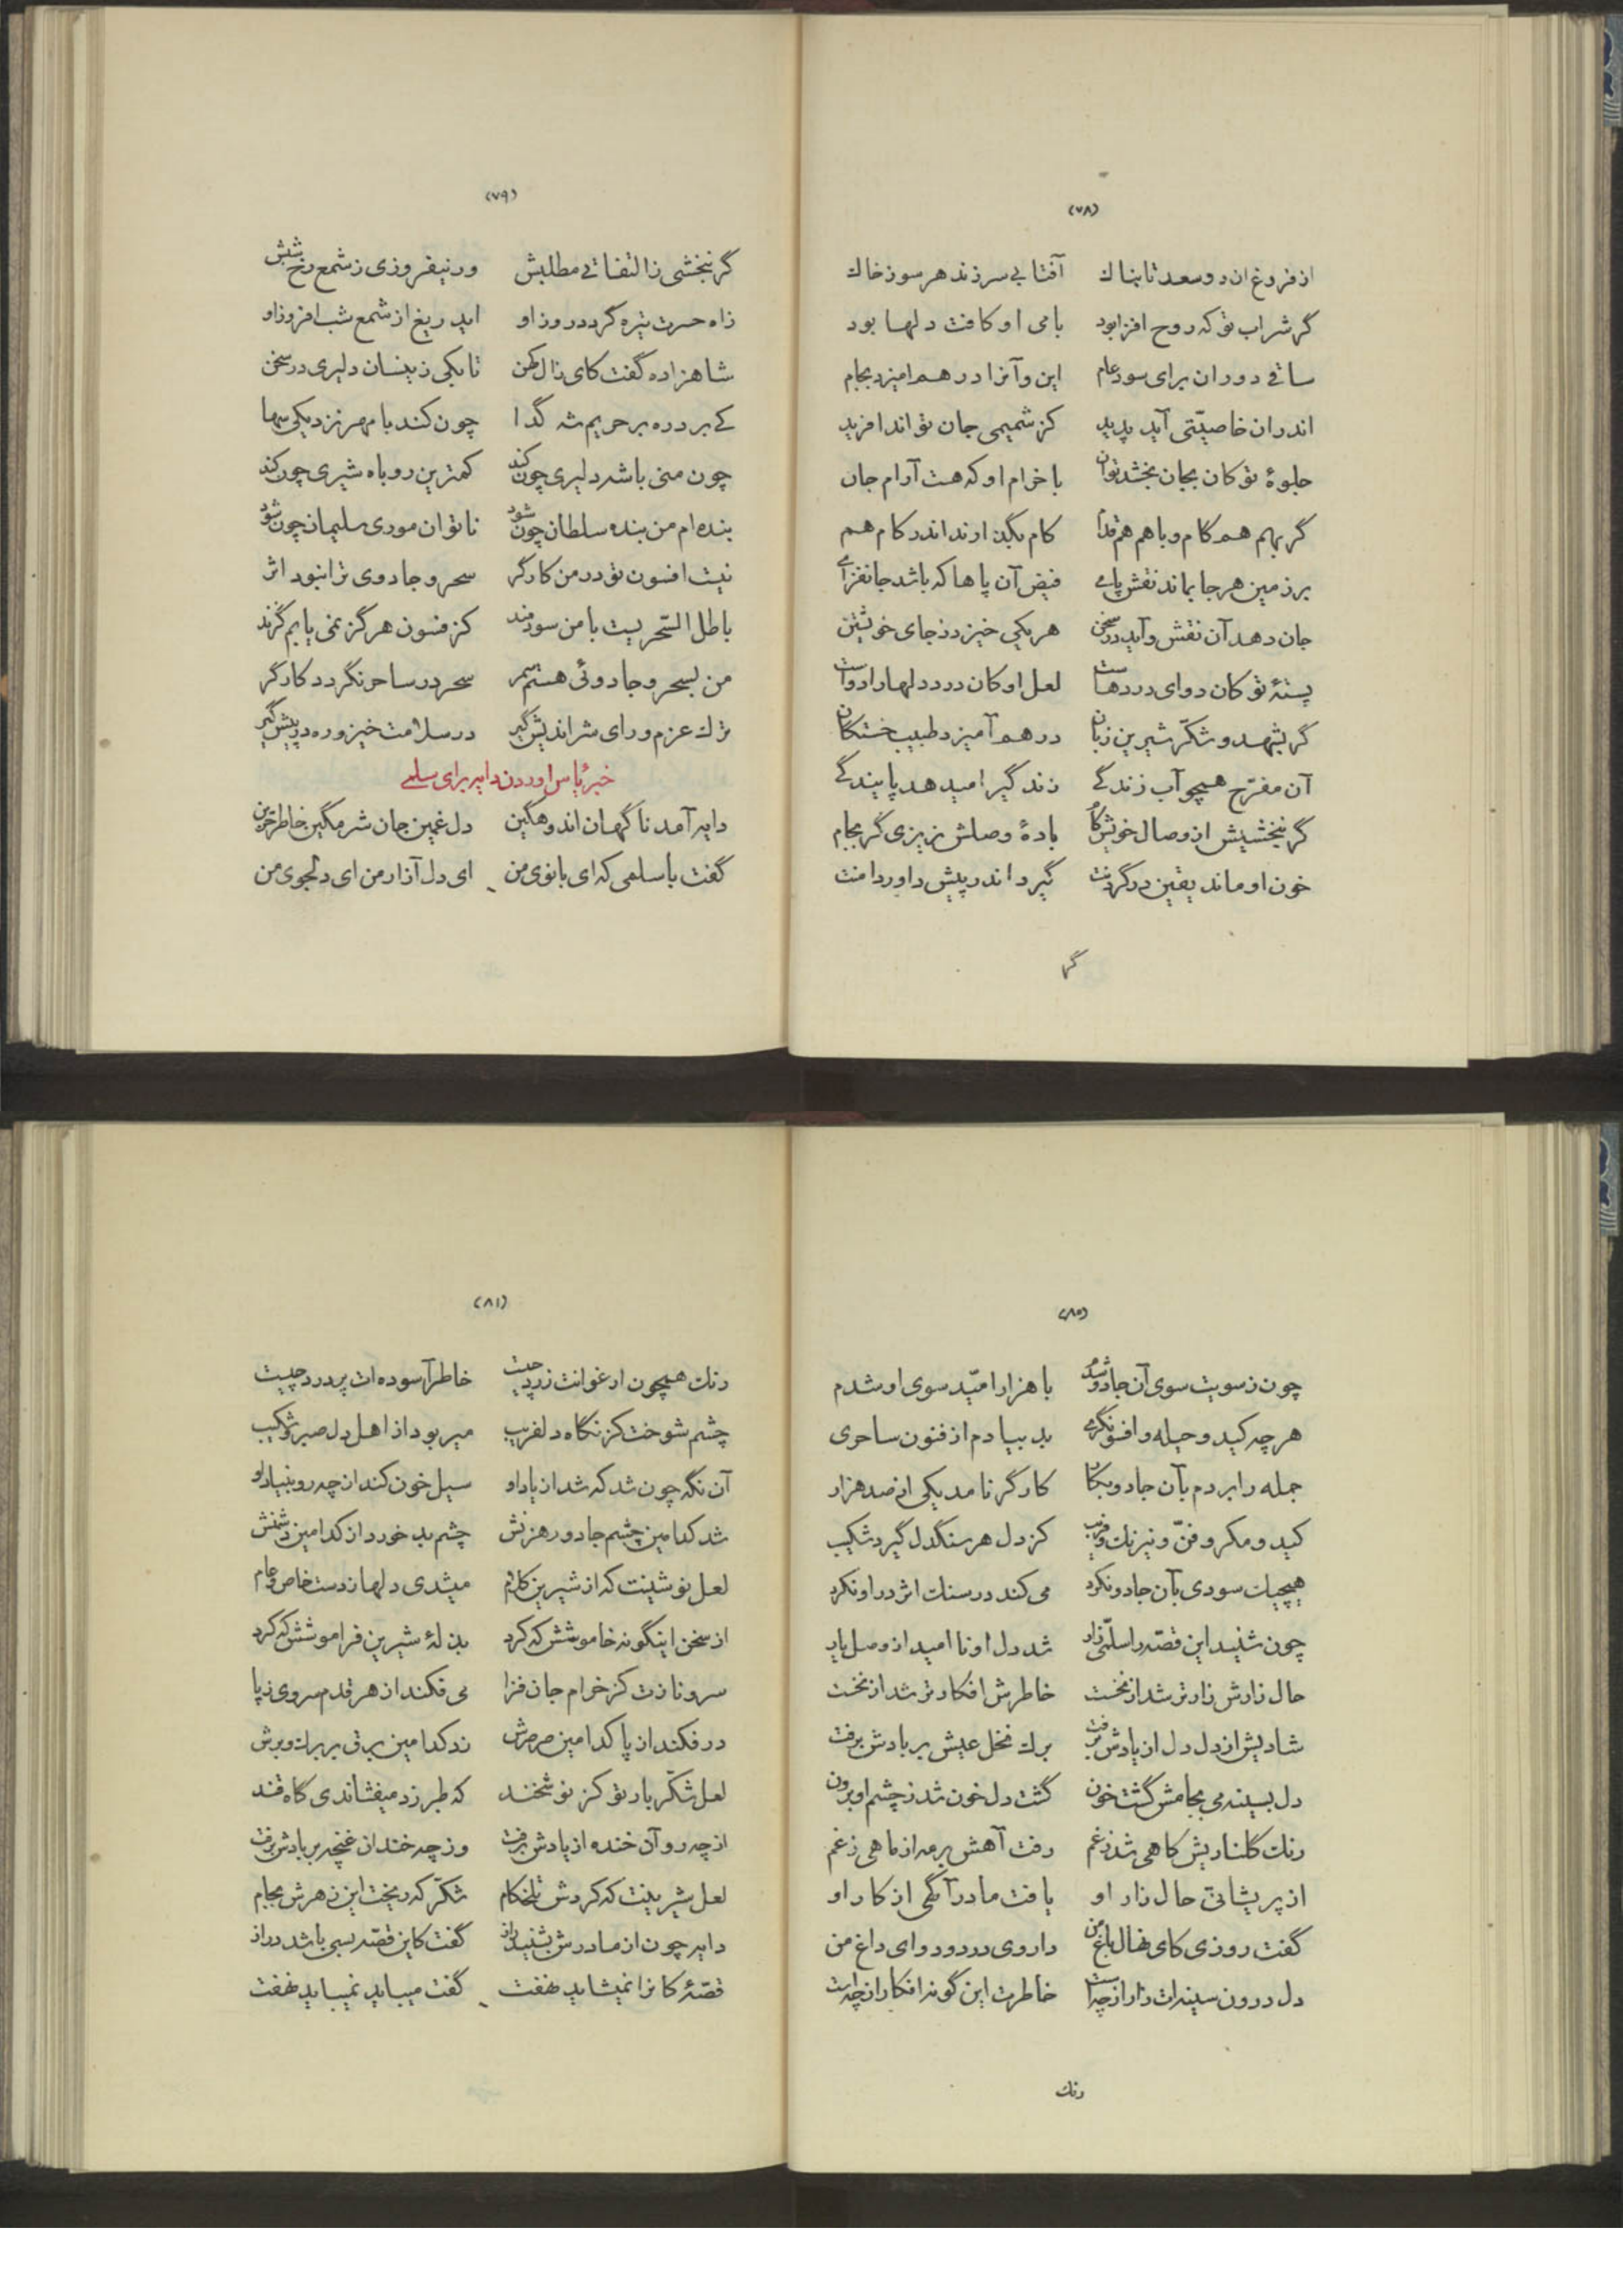 (۷۸)
از فروغ ان دو سعد تابناك آفتابی سر زند هر سوز خاك
گر شراب تو که روح افزا بود با می او کافت دلها بود
ساقی دوران برای سود عام این و آنرا در هم امیزد بجام
اندران خاصیّتی آید پدید کز شمیمی جان تواند افرید
جلوهٔ تو کان بجان بخشد توان با خرام او که هست آرام جان
گر بهم همگام و با هم هم قدم کام بگذارند اندر کام هم
بر زمین هر جا بماند نقش پای فیض آن پاها که باشد جانفزای
جان دهد آن نقش و آید در سخن هر یکی خیزد ز جای خویشتن
پستهٔ تو کان دوای دردهاست لعل او کان درد دلها را دواست
گر بشهد و شکّر شیرین زبان در هم آمیزد طبیب خستگان
آن مفرّح همچو آب زندگی زندگی را میدهد پایندگی
گر نبخشیش از وصال خویش کام بادهٔ وصلش نریزی گر بجام
خون او ماند یقین در گردنت گیرد اندر پیش داور دامنت
گر
(۷۹)
گر نبخشی ز التفاتی مطلبش ور نیفروزی ز شمع رخ شبش
ز اه حسرت تیره گردد روز او اید ریغ از شمع شب افروز او
شاهزاده گفت کای زال کهن تا بکی زینسان دلیری در سخن
کی برد ره بر حریم شه گدا چون کند با مهر نزدیکی سها
چون منی باشد دلیری چون کند کمترین روباه شیری چون کند
بنده ام من بنده سلطان چون شود ناتوان موری سلیمان چون شود
نیست افسون تو در من کارگر سحر و جادوی ترا نبود اثر
باطل السّحریست با من سودمند کز فسون هرگز نمی یابم گزند
من بسحر و جادوئی هستم سمر سحر در ساحر نگردد کارگر
ترك عزم و رای شر اندیش گیر در سلامت خیز و ره در پیش گیر
خبر یاس اوردن دایه برای سلمی
دایه آمد ناگهان اندوهگین دل غمین جان شرمگین خاطر حزین
گفت با سلمی که ای بانوی من ای دل آزار من ای دلجوی من
(۸۰)
چون ز سویت سوی آن جادو شدم با هزار امّید سوی او شدم
هر چه کید و حیله و افسونگری بد بیادم از فنون ساحری
جمله را بردم بآن جادو بکار کارگر نامد یکی از صد هزار
کید و مکر و فنّ و نیرنك و فریب کز دل هر سنگدل گیرد شکیب
هیچیك سودی بآن جادو نکرد می کند در سنك اثر در او نکرد
چون شنید این قصّه را سلمیّ زار شد دل او نا امید از وصل یار
حال زارش زارتر شد از نخست خاطرش افکارتر شد از نخست
شادیش از دل دل از یادش برفت برك نخل عیش بر بادش برفت
دل بسینه می بجامش گشت خون گشت دل خون شد ز چشم او برون
رنك گلناریش کاهی شد ز غم رفت آهش بر مه از ماهی ز غم
از پریشانیّ حال زار او یافت مادر آگهی از کار او
گفت روزی کای نهال باغ من داروی درد و دوای داغ من
دل درون سینه ات زار از چه است خاطرت این گونه افکار از چه است
رنك
(۸۱)
رنك همچون ارغوانت زرد چیست خاطر آسوده ات پر درد چیست
چشم شوخت کز نگاه دلفریب میربود از اهل دل صبر و شکیب
آن نگه چون شد که شد از یاد او سیل خون کند از چه رو بنیاد او
شد کدامین چشم جادو رهزنش چشم بد خورد از کدامین دشمنش
لعل نوشینت که از شیرین کلام میشدی دلها ز دست خاص و عام
از سخن اینگونه خاموشش که کرد بذلهٔ شیرین فراموشش که کرد
سرو نازت کز خرام جان فزا می فکند از هر قدم سروی ز پا
در فکند از پا کدامین صرصرش زد کدامین برق بر برك و برش
لعل شکّر بار تو کز نوشخند که طبرزد میفشاندی گاه قند
از چه رو آن خنده از یادش برفت وز چه خندان غنچه بر بادش برفت
لعل شیرینت که کردش تلخکام شکّر که ریخت این زهرش بجام
دایه چون از مادرش بشنید راز گفت کاین قصّه بسی باشد دراز
قصّهٔ کانرا نمیشاید نهفت گفت میباید نمیباید نهفت